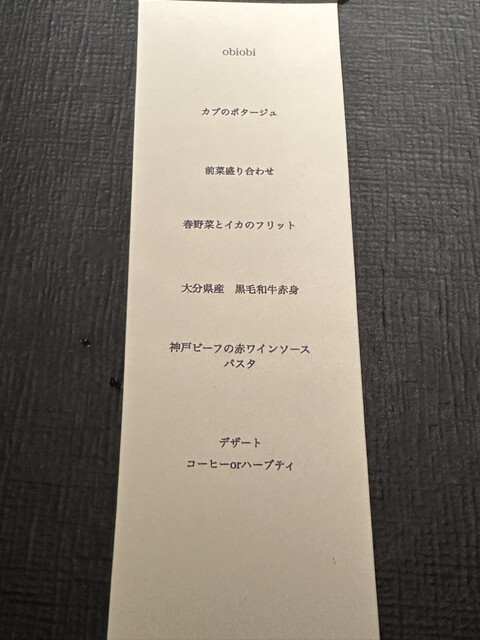 obiobi
カブのポタージュ
前菜盛り合わせ
春野菜とイカのフリット
大分県産　黒毛和牛赤身
神戸ビーフの赤ワインソース
パスタ
デザート
コーヒーorハーブティ